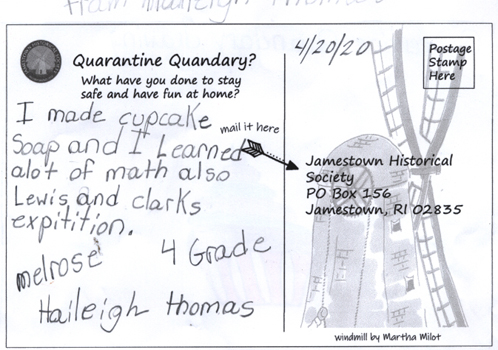 From Haileigh Thomas
Quarantine Quandary?
What have you done to stay
safe and have fun at home?
I made cupcake
Soap and I Learned
alot of math also
Lewis and clarks
expitition.
melrose 4 Grade
Haileigh thomas
4/20/20
Postage
Stamp
Here
mail it here
Jamestown Historical
Society
PO Box 156
Jamestown, RI 02835
windmill by Martha Milot